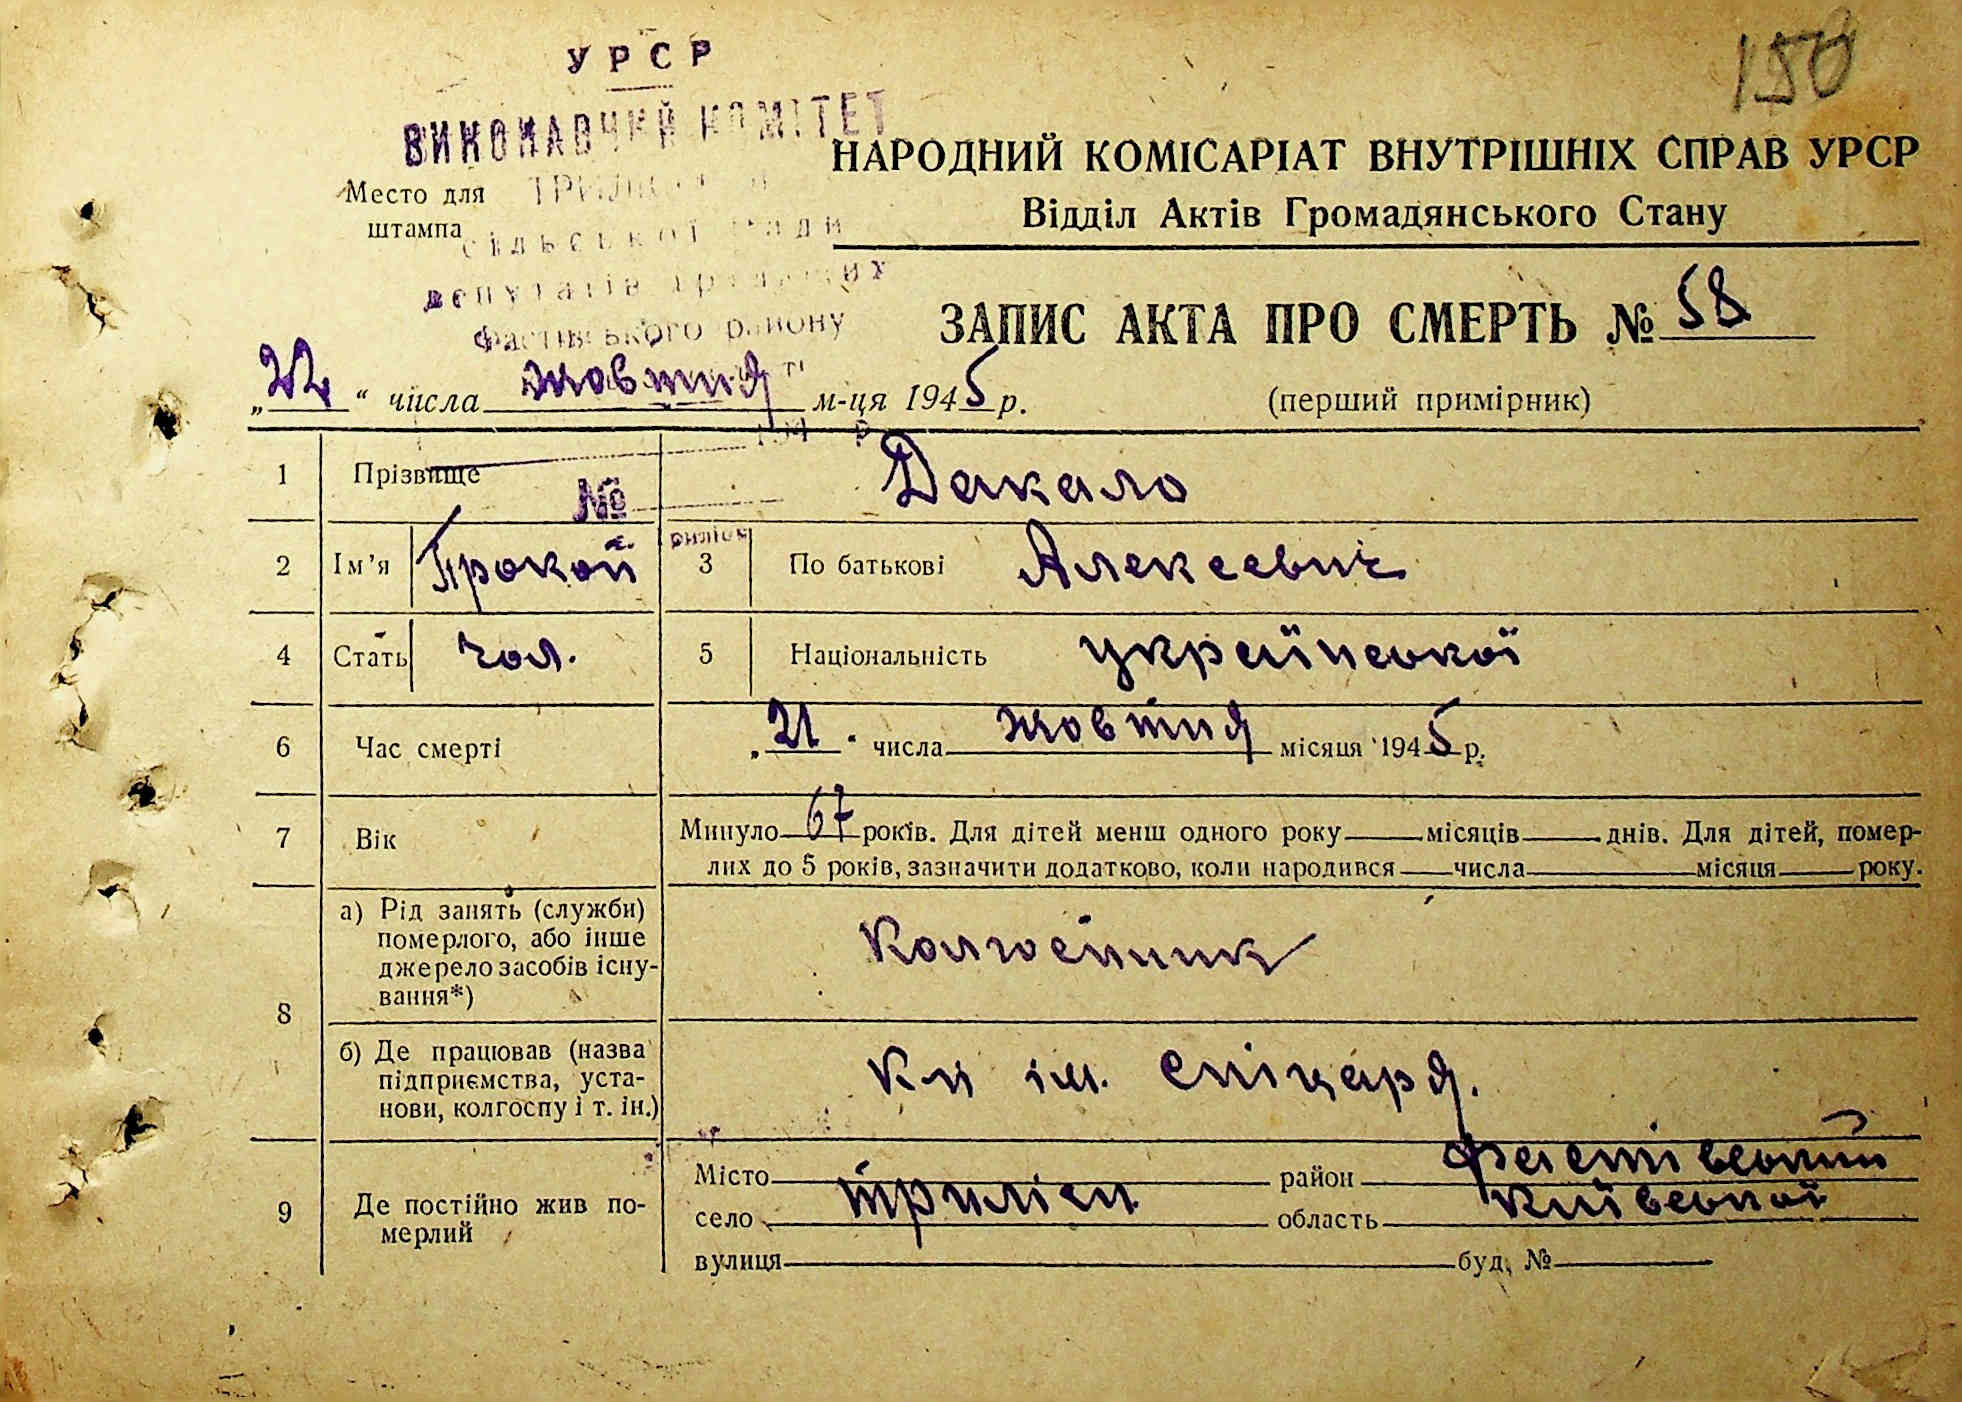 150
УРСР
ВИКОНАВЧИЙ КОМІТЕТ
сільської ради
депутатів трудящих
Фастівського району
Место для
штампа
НАРОДНИЙ КОМІСАРІАТ ВНУТРІШНІХ СПРАВ УРСР
Відділ Актів Громадянського Стану
ЗАПИС АКТА ПРО СМЕРТЬ № 58
(перший примірник)
„22“ числа жовтня м-ця 1945 р.
1 Прізвище Дакало
№
2 Ім'я Прокоп 3 По батькові Алексеевич
4 Стать чол. 5 Національність української
6 Час смерті „21“ числа жовтня місяця 1945 р.
7 Вік Минуло 67 років. Для дітей менш одного року місяців днів. Для дітей, помер-
лих до 5 років, зазначити додатково, коли народився числа місяця року.
8 а) Рід занять (служби)
померлого, або інше
джерело засобів існу-
вання*)
Колгоспник
б) Де працював (назва
підприємства, уста-
нови, колгоспу і т. ін.)
ім.
9 Де постійно жив по-
мерлий
Місто район Фастівський
село Триліси область Київської
вулиця буд. №